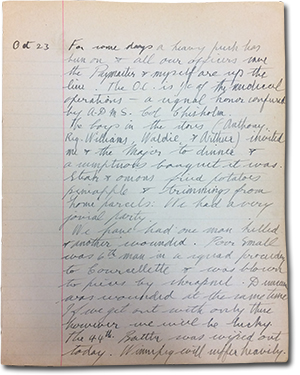 Oct 23 For some days a heavy push has
been on & all our officers save
the Paymaster & myself are up the
line. The O.C. is i/c of the medical
operations - a signal honor conferred
by A.D.M.S. Col. Chisholm.
The boys in the stores (Anthony,
Reg. Williams, Waldie, & Arthur) invited
me & the Major to dinner &
a sumptuous banquet it was.
Steak & onions fried potatoes
pineapple & trimmings from
home parcels. We had a very
jovial party.
We have had one man killed
& another wounded. Poor Small
was 6th man in a squad proceeding
to Courcellette & was blown
to pieces by shrapnel. Duncan
was wounded at the same time
If we get out with only this
however we will be lucky.
The 44th Battn was wiped out
today. Winnipeg will suffer heavily.